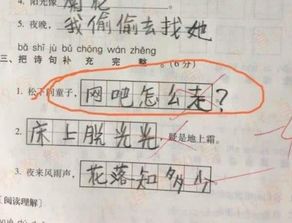 5. 夜晚，我偷偷去找她
bǎ shī jù bǔ chōng wán zhěng
三、把诗句补充完整。(6分)
1. 松下问童子，网吧怎么走？
2. 床上脱光光，疑是地上霜。
3. 夜来风雨声，花落知多少
[阅读理解]